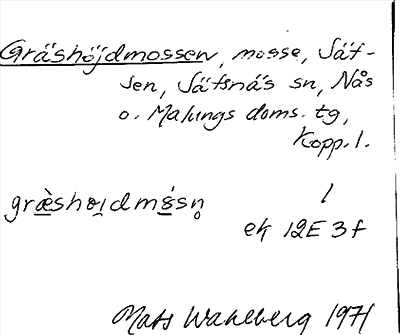 Gräshöjdmossen, mosse, Sät-
sen, Sätsnäs sn, Nås
o. Malungs doms. tg,
Kopp. l.
ek 12E 3f
Mats Wahlberg 1971